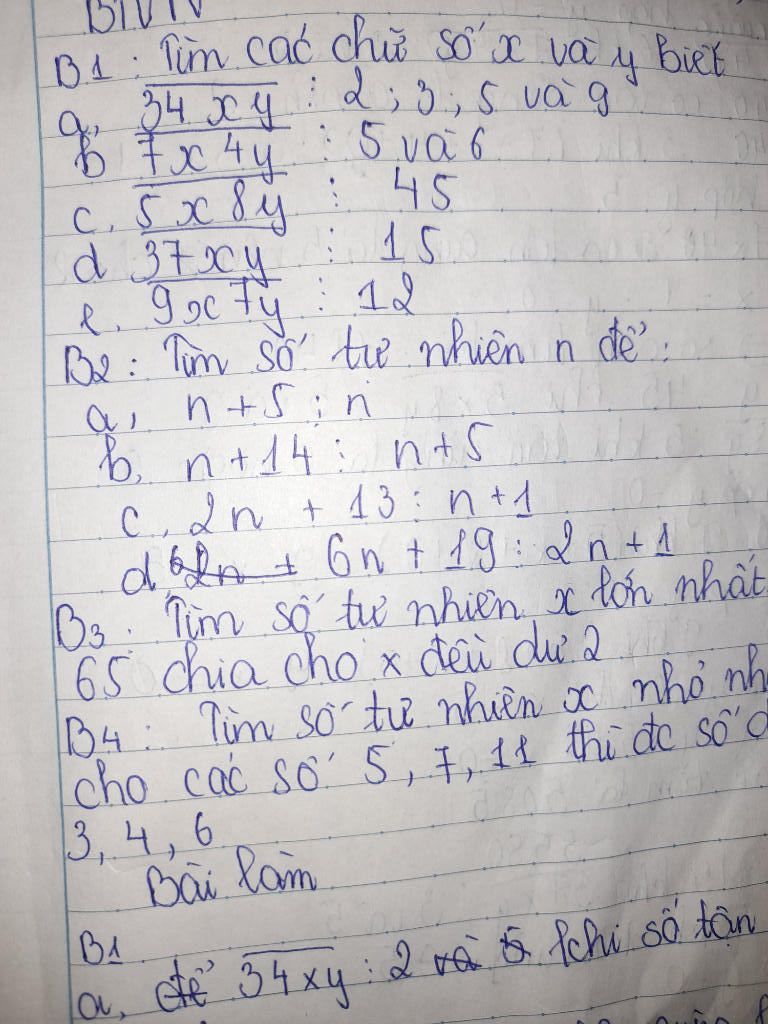 BTVN
B1: Tìm các chữ số x và y biết
a, 34xy ⋮ 2; 3; 5 và 9
b 7x4y ⋮ 5 và 6
c. 5x8y ⋮ 45
d 37xy ⋮ 15
e. 9x7y ⋮ 12
B2: Tìm số tự nhiên n để:
a, n + 5 ⋮ n
b, n + 14 ⋮ n + 5
c, 2n + 13 ⋮ n + 1
d 6n + 19 ⋮ 2n + 1
B3: Tìm số tự nhiên x lớn nhất
65 chia cho x đều dư 2
B4: Tìm số tự nhiên x nhỏ
cho các số 5, 7, 11 thì đc số
3, 4, 6
Bài làm
B1
a, để 34xy ⋮ 2 và 5 khi số tận